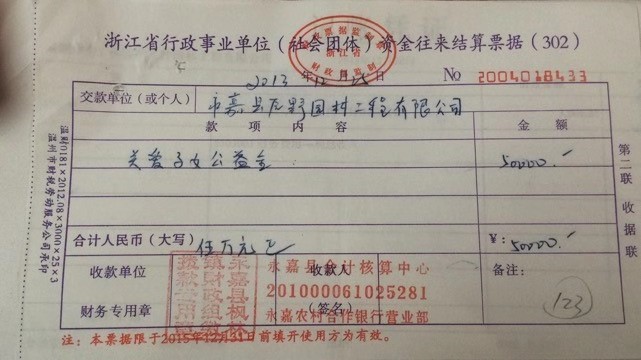 浙江省行政事业单位（社会团体）资金往来结算票据（302）
浙江省
财政部监制
2013 年 12 25 No 2004018433
交款单位（或个人） 永嘉县 园林工程有限公司
款 项 内 容 金 额
关爱子女公益金 50000.-
合计人民币（大写） 伍万元正 ¥: 50000.-
收款单位 收款人 备注：
财务专用章 （签名） 123
永嘉县会计核算中心
201000061025281
永嘉农村合作银行营业部
永嘉县枫林
镇财政组
拨款专用
注：本票据限于2015年12月31日前填开使用方为有效。
第二联 收据联
温财0181×2012.08×3000×25×3
温州市财税劳动服务公司承印